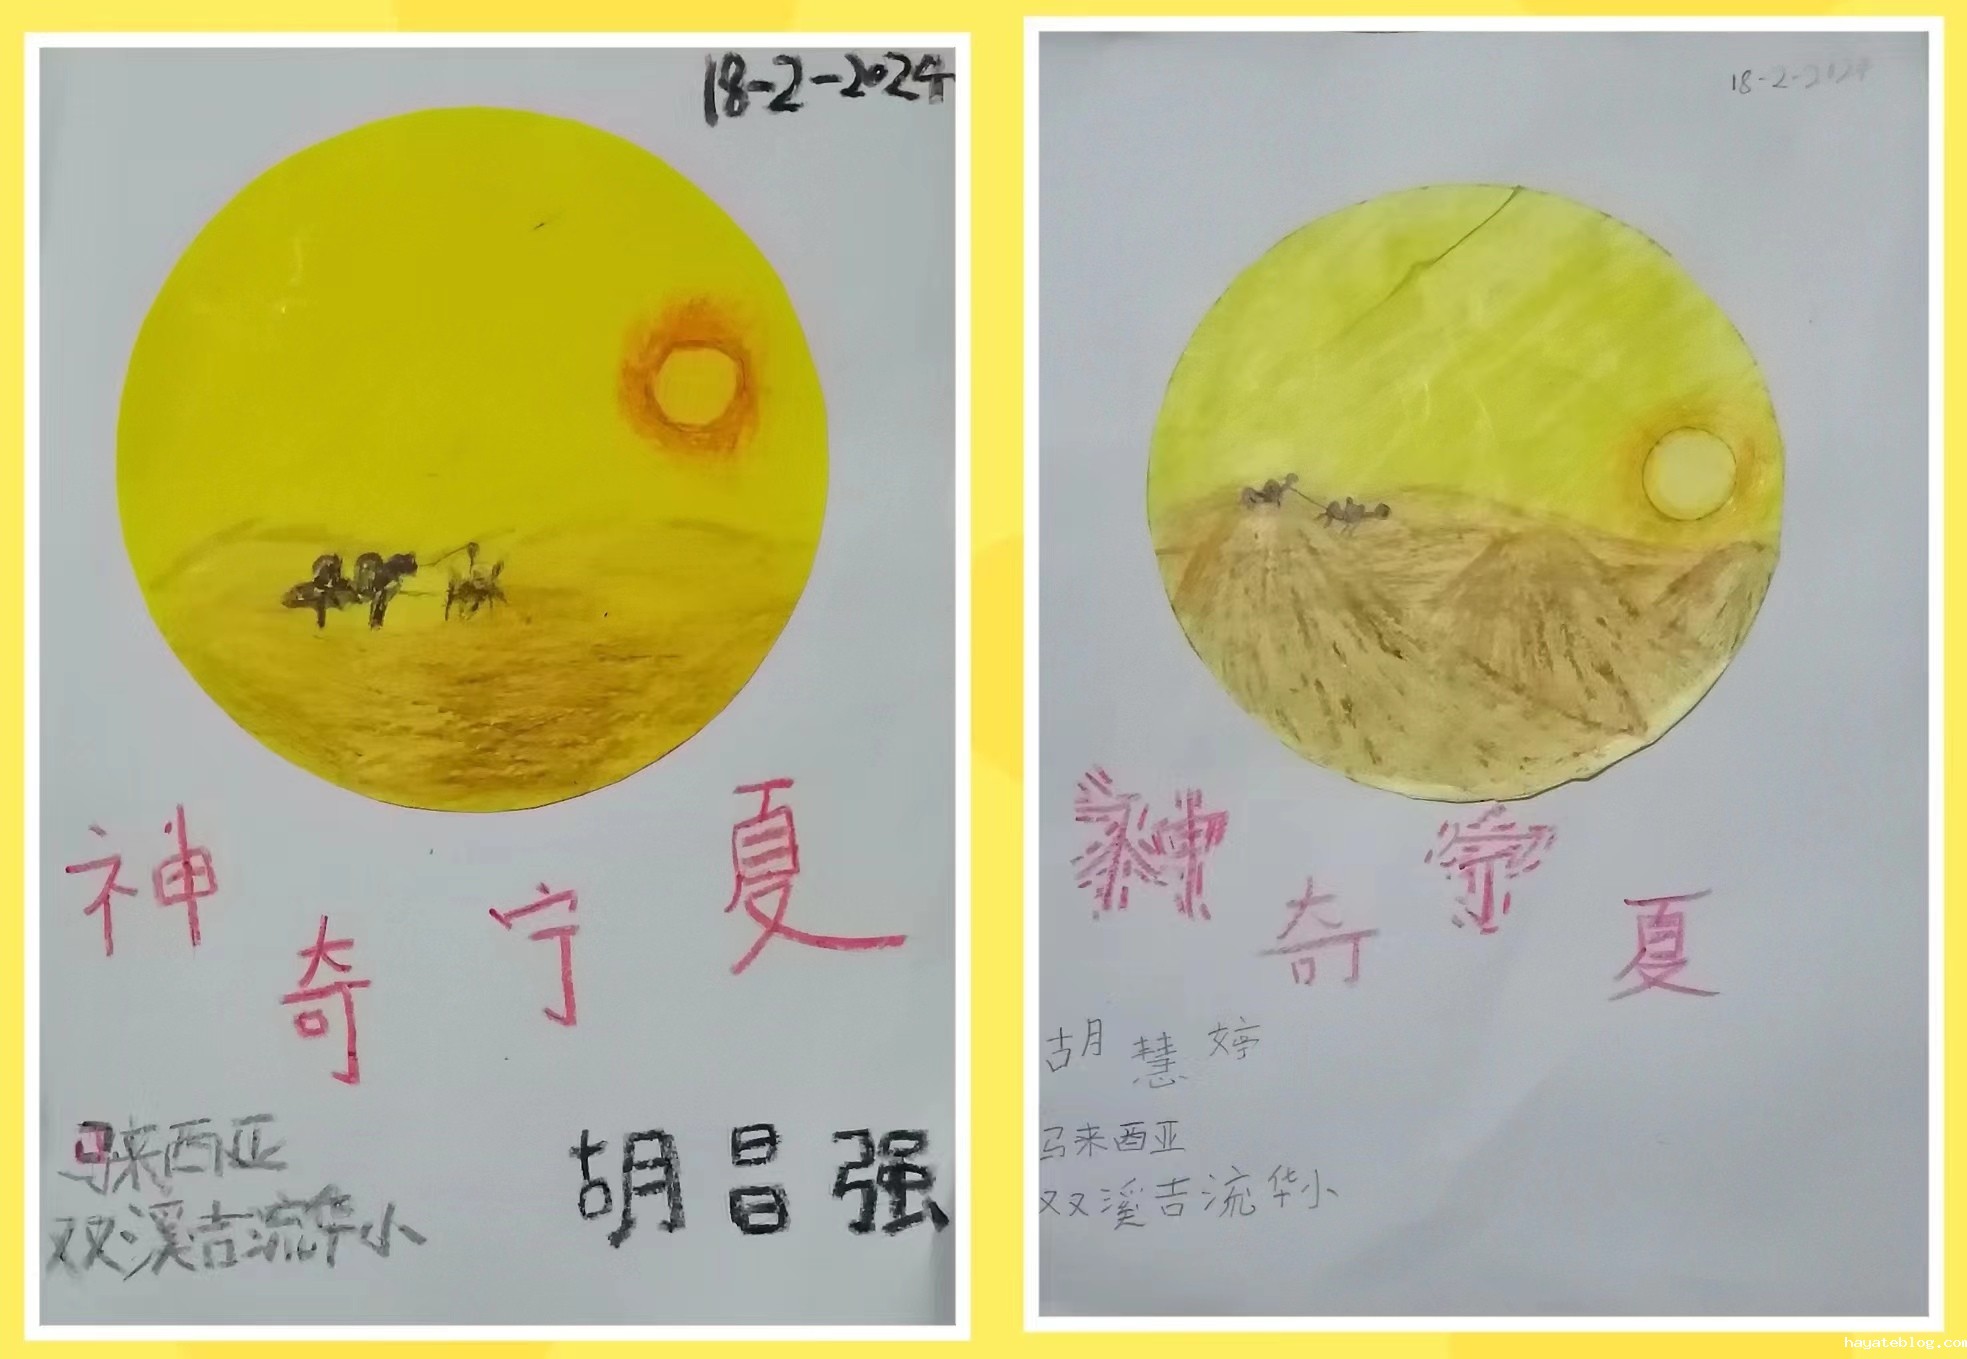 18-2-2024
神奇宁夏
马来西亚
双溪吉流华小
胡昌强
18-2-2024
神奇宁夏
胡慧婷
马来酉亚
双溪吉流华小
hayateblog.com